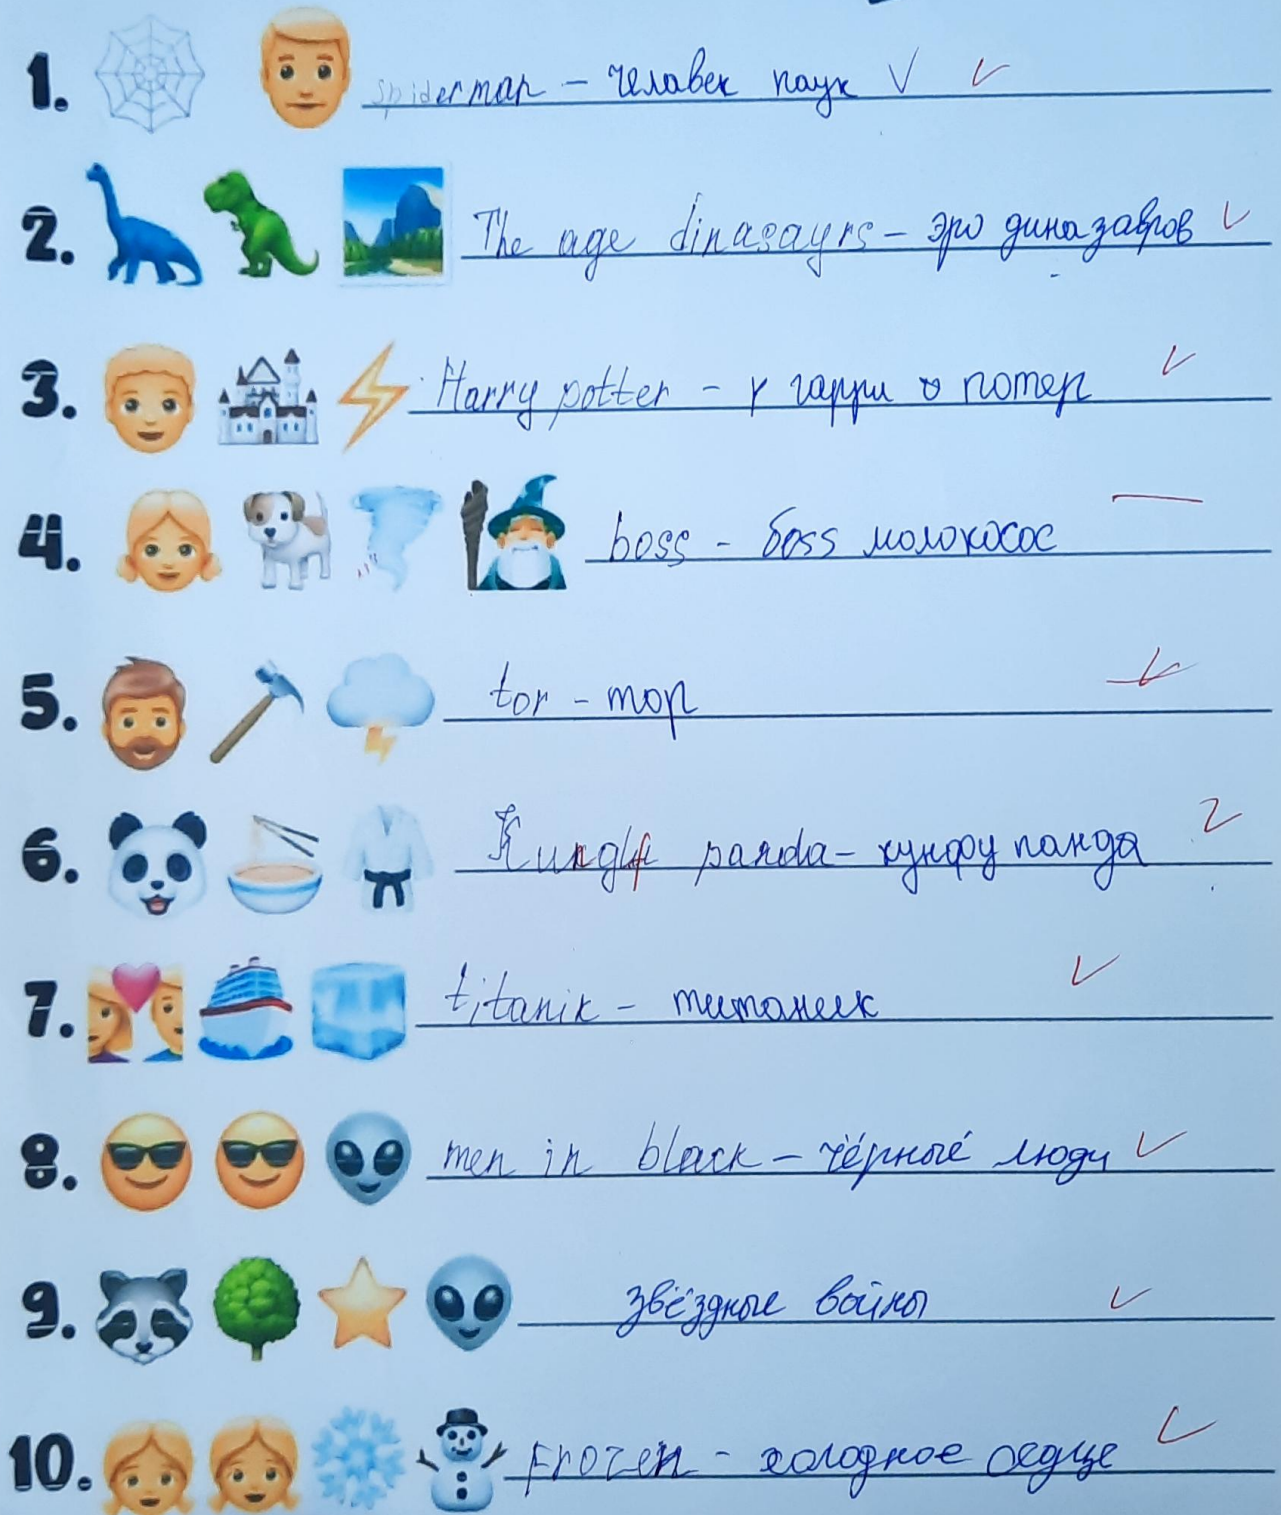 1. spiderman - челавек паук
2. The age dinasayrs - эра диназавров
3. Harry potter - гарри потер
4. boss - босs молокосос
5. tor - тор
6. panda - кунфу панда
7. titanik - титаник
8. men in black - чёрные люди
9. звёздные войны
10. Frozen - холодное седце